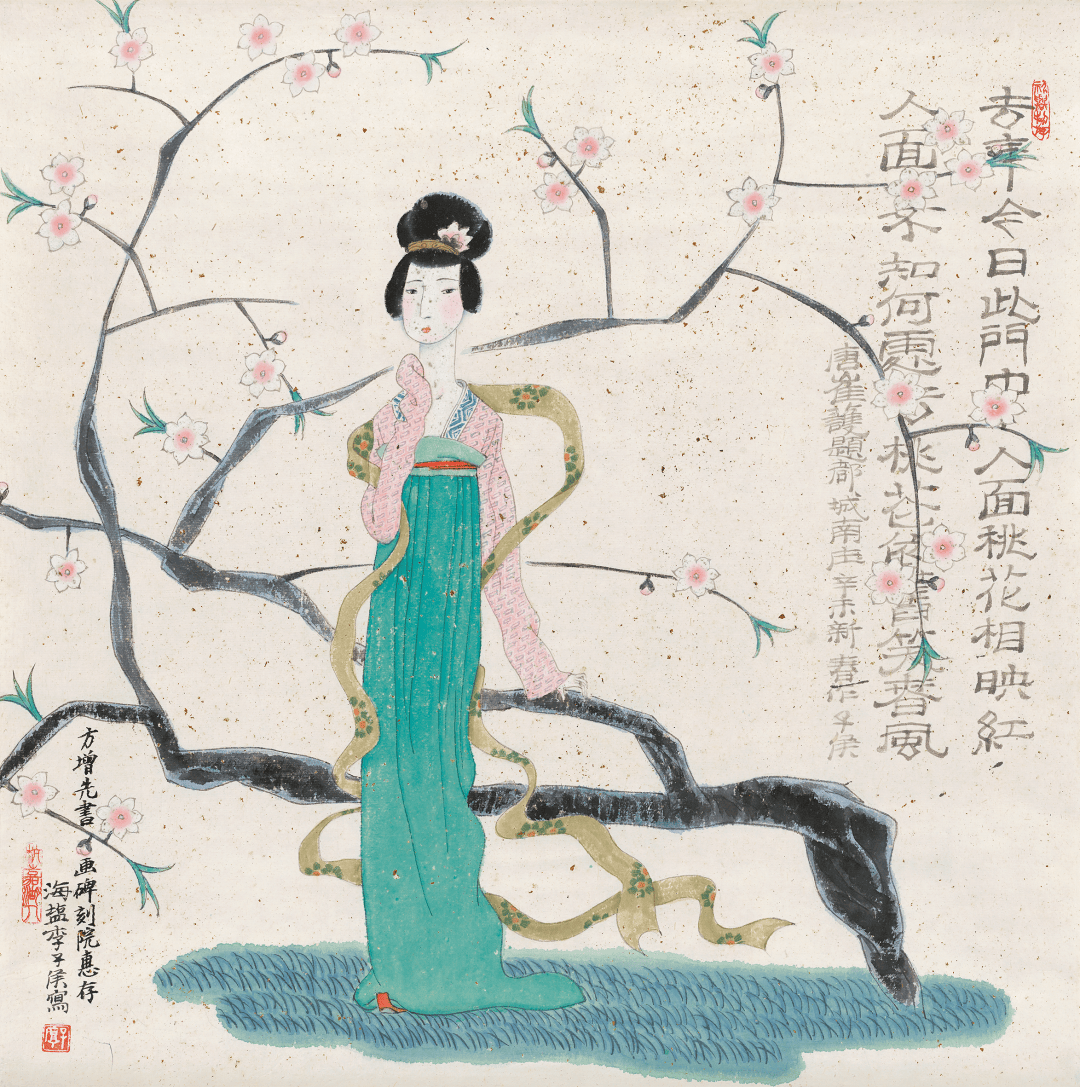 去年今日此門中人面桃花相映紅
人面不知何處去桃花依舊笑春風
唐崔護題都城南庄辛未新春作子侯
方增先書画碑刻院惠存
海盐李子侯寫